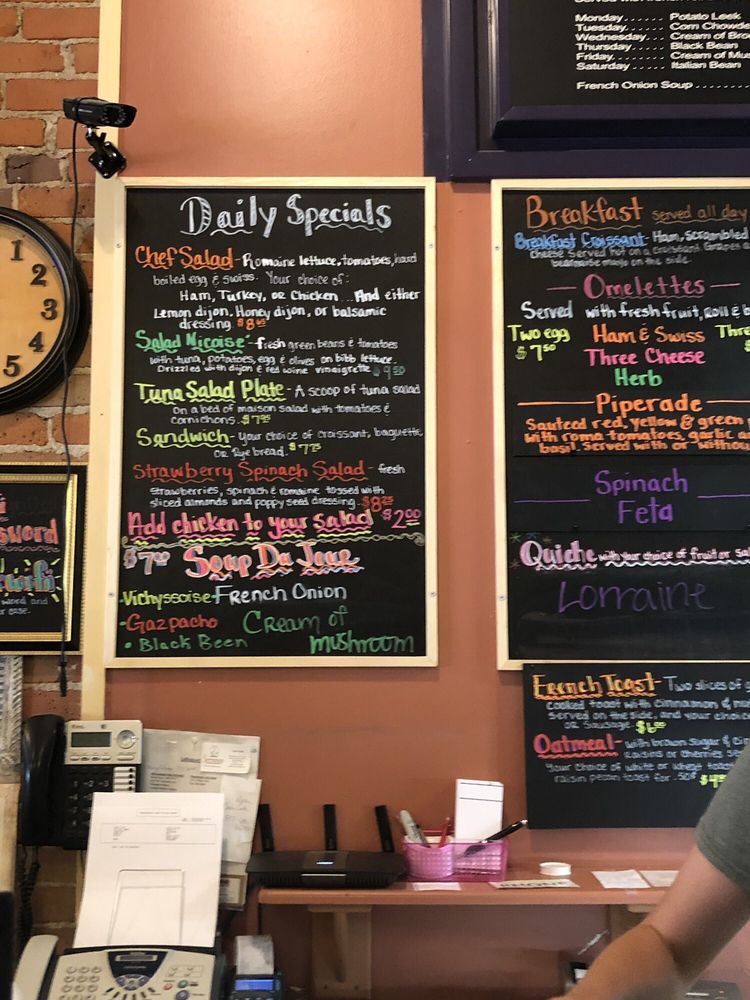 Monday...... Potato Leek
Tuesday..... Corn Chowde
Wednesday... Cream of Bro
Thursday.... Black Bean
Friday...... Cream of Mus
Saturday.... Italian Bean
French Onion Soup
1
2
3
4
5
Daily Specials
Chef Salad- Romaine lettuce, tomatoes, hard
boiled egg & swiss. Your choice of:
Ham, Turkey, or Chicken... And either
Lemon dijon, Honey dijon, or balsamic
dressing.
Salad Nicoise- fresh green beans & tomatoes
with tuna, potatoes, egg & olives on bibb lettuce.
Drizzled with dijon & red wine vinaigrette $9.50
Tuna Salad Plate- A scoop of tuna salad
on a bed of maison salad with tomatoes &
cornichons. $7.95
Sandwich- your choice of croissant, baguette
or Rye bread. $7.75
Strawberry Spinach Salad- fresh
strawberries, spinach & romaine tossed with
sliced almonds and poppy seed dressing. $8.25
Add chicken to your salad $2.00
$7.00 Soup Du Jour
Vichyssoise French Onion
• Gazpacho Cream of
• Black Been mushroom
Breakfast served all day
Breakfast Croissant- Ham, Scrambled
cheese served hot on a croissant. Grapes
on the side.
Omelettes
Served with fresh fruit, roll & b
Two egg Ham & Swiss Thre
$7.50 Three Cheese
Herb
Piperade
Sauteed red, yellow & green p
with roma tomatoes, garlic a
basil. Served with or withou
Spinach
Feta
Quiche with your choice of fruit or sal
Lorraine
French Toast- Two slices of
cooked toast with cinnamon &
served on the side, and your choi
or sausage. $6.00
Oatmeal- with brown sugar & cin
raisins or cherries se
Your choice of white or wheat toast
raisin pecan toast for .50¢
sword
word and